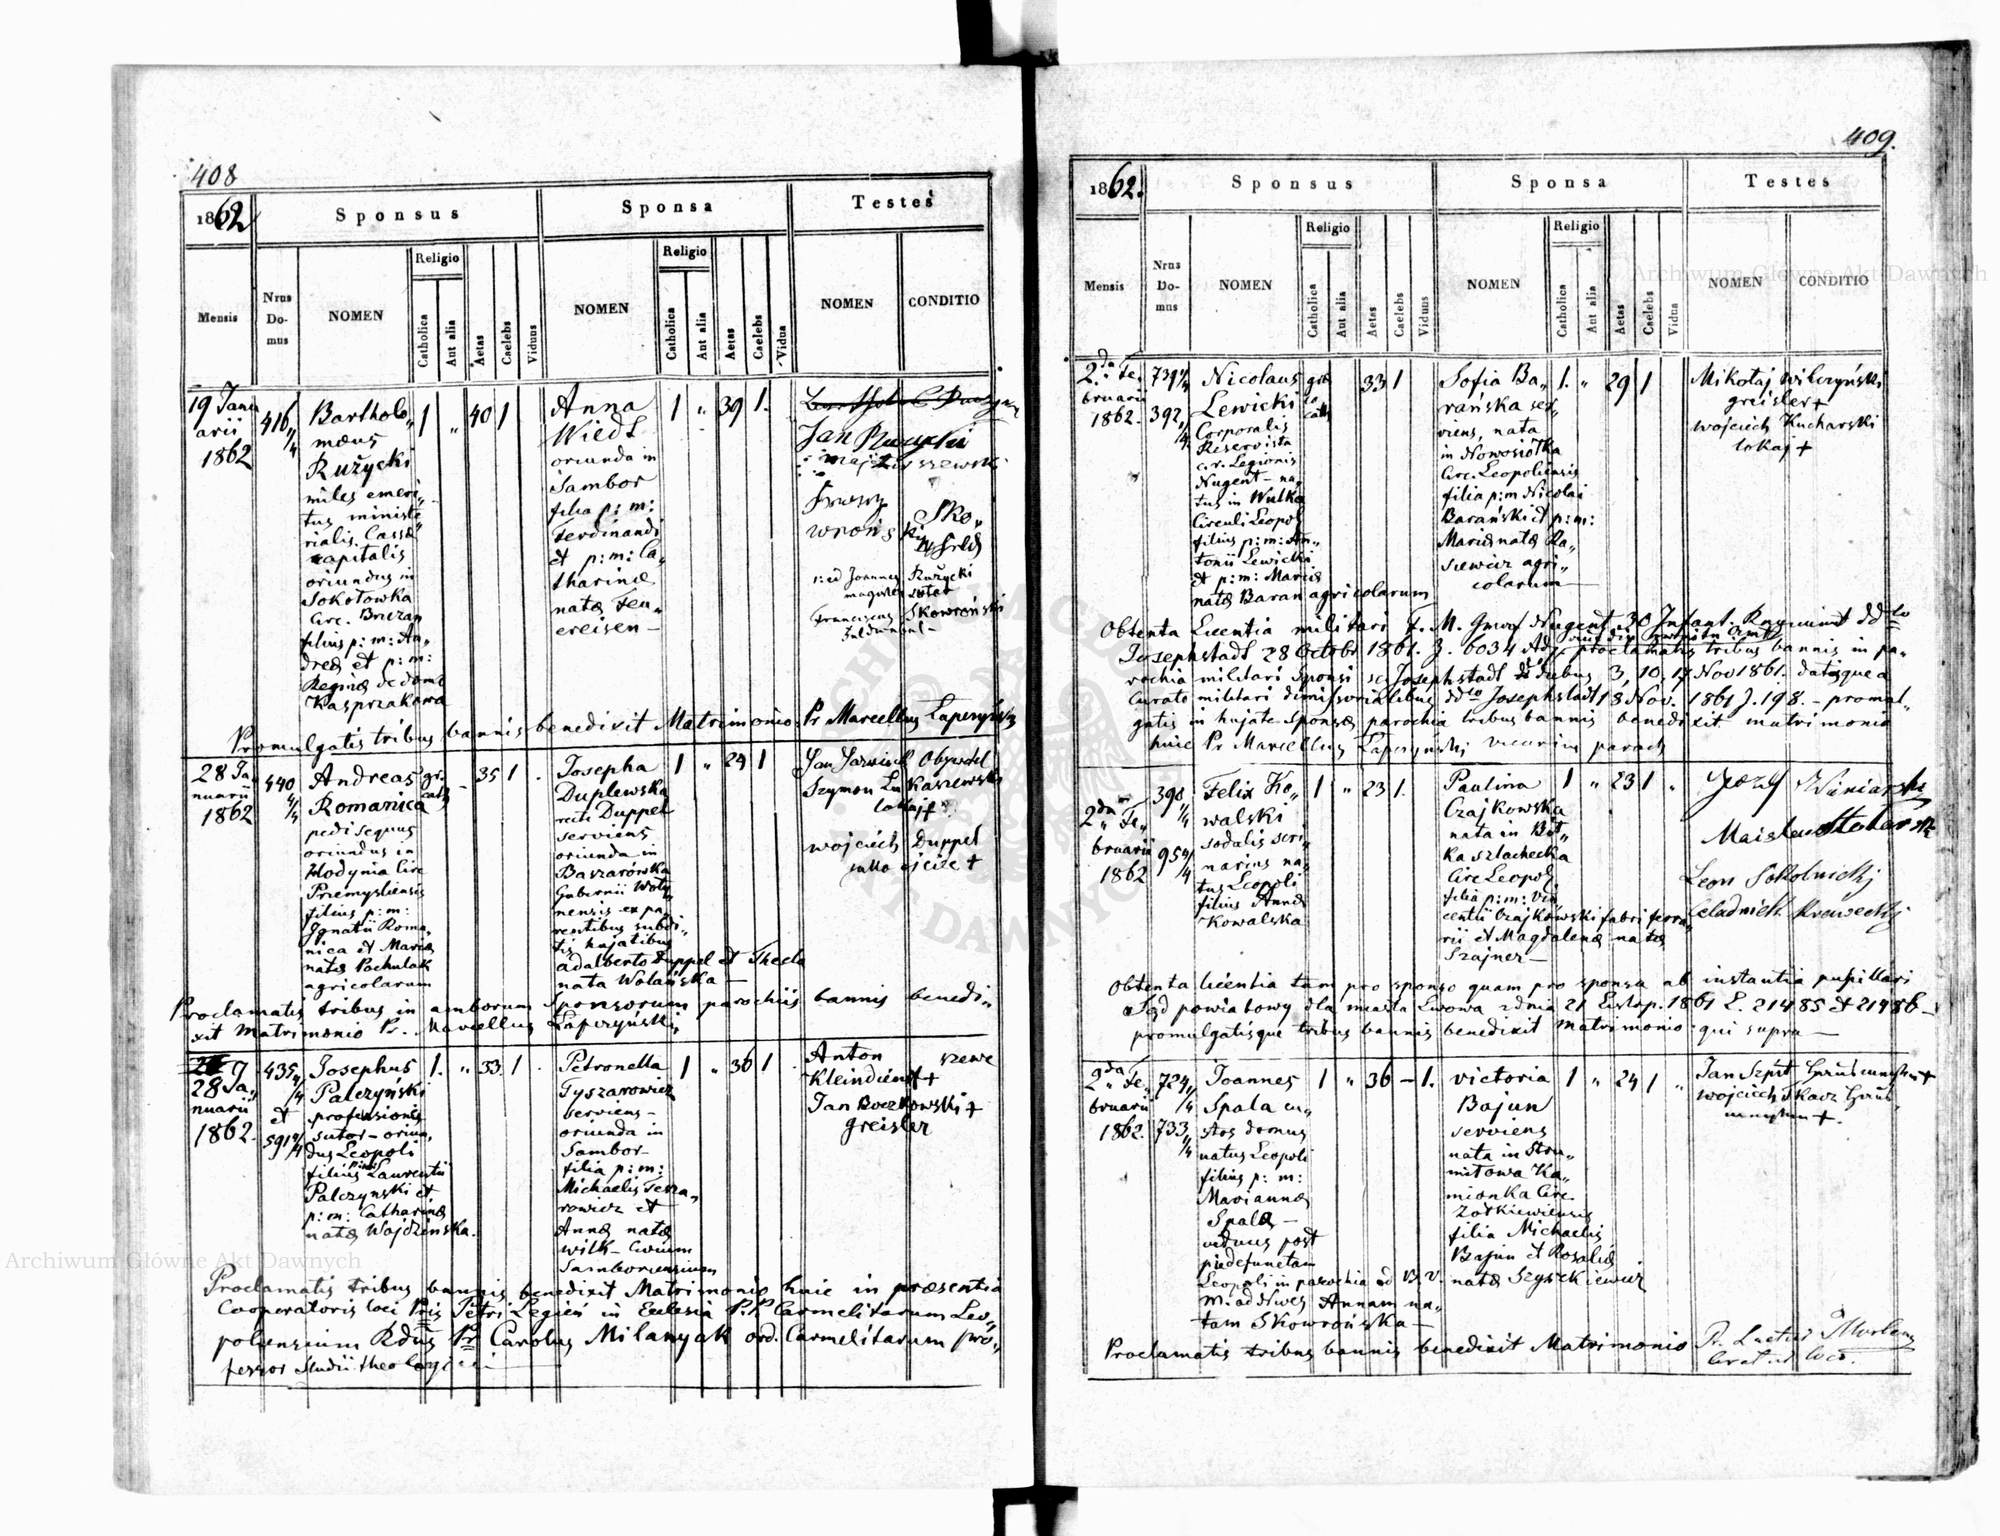 408
1862
Sponsus
Sponsa
Testes
Mensis
Nrus Domus
NOMEN
Religio
Catholica
Aut alia
Aetas
Caelebs
Viduus
NOMEN
Religio
Catholica
Aut alia
Aetas
Caelebs
Vidua
NOMEN
CONDITIO
19 Janu
arii
1862
416 4/4
Bartholo„
mæus
Rużycki
miles emeri„
tus ministe
rialis Cassæ
capitalis
oriundus in
Sokołowka
Circ. Brzezan
filius p: m: An„
dreæ et p: m:
Reginæ de domo
Kasprzakowa
1 „ 40 1
Anna
Wiedt
oriunda in
Sambor
filia p: m:
Ferdinandi
et p: m: Ca„
tharinæ
natæ Feu„
ereisen –
1 „ 39 1.
Jan Ruzycki
majster szewski
i: ed Joannes Rużycki
magister
Franciscus Skowroński
Promulgatis tribus bannis benedixit Matrimonio Pr Marcellus Łapczyński
28 Ja
nuarii
1862
440 4/4
Andreas
Romanica
pedisequus
oriundus in
Hodynia Circ
Przemysliensis
filius p: m:
Ignatii Roma„
nica et Mariæ
natæ Pachulak
agricolarum
gr. cath
35 1
Josepha
Duplewska
recte Duppel
serviens
oriunda in
Baszarówka
Gubernii Woły
nensis ex pa„
rentibus subdi„
tis hujatibus
Adalberto Duppel et Thecla
nata Wolańska –
1 „ 24 1
Szymon
lokaj +
Wojciech Duppel
jako ojciec +
Proclamatis tribus in amborum Sponsorum parochiis bannis benedi„
xit Matrimonio Pr. Marcellus Łapczyński
28 Ja„
nuarii
1862.
435 4/4
et
591 4/4
Josephus
Palczyński
professionis
sutor – oriun„
dus Leopoli
filius p: m: Laurentii
Palczynski et
p: m: Catharinæ
natæ Wojdzinska.
1. „ 33 1
Petronella
Tyszarowicz
serviens –
oriunda in
Sambor –
filia p: m:
Michaelis Tesza„
rowicz et
Annæ natæ
Wilk – Civium
Samboriensium
1 „ 36 1
Anton szewc
Kleindienst +
Jan Boczkowski +
greisler
Proclamatis tribus bannis benedixit Matrimonio huic in præsentia
Cooperatoris loci Pris Petri Legień in Ecclesia P.P. Carmelitarum Leo„
poliensium Rdus Pr Carolus Milanyak ord. Carmelitarum pro„
fessor Studii theologici
409.
1862.
Sponsus
Sponsa
Testes
Mensis
Nrus Domus
NOMEN
Religio
Catholica
Aut alia
Aetas
Caelebs
Viduus
NOMEN
Religio
Catholica
Aut alia
Aetas
Caelebs
Vidua
NOMEN
CONDITIO
2.da Fe„
bruarii
1862.
731 4/4
392 4/4
Nicolaus
Lewicki
Corporalis
Reservista
c. r. Legionis
Nugent – na„
tus in Wulka
Circuli Leopol
filius p: m: An„
tonii Lewicki
et p: m: Mariæ
natæ Baran agricolarum
33 1
Sofia Ba„
rańska ser„
viens, nata
in Nowosiołka
Circ. Leopoliensis
filia p: m Nicolai
Barański et p: m:
Mariæ natæ Ra„
siewicz agri„
colarum
1. „ 29 1
Mikołaj Wilczyński
greisler +
Wojciech Kucharski
lokaj +
Obtenta licentia militari F. M. Graf Nugent 30 Infant. Regiment ddto
Josephstadt 28 Octobr 1861. J. 6034 proclamatis tribus bannis in pa„
rochia militari Sponsi sc: Josephstadt diebus 3, 10, 17 Nov 1861. datisque a
Curato militari dimissorialibus ddto Josephstadt 18 Nov. 1861 J. 198. – promul„
gatis in hujate Sponsæ parochia tribus bannis benedixit matrimonio
huic Pr Marcellus Łapczyński vicarius paroch
2da Fe„
bruarii
1862
398 4/4
95 4/4
Felix Ko„
walski
sodalis seri„
narius na„
tus Leopoli
filius Annæ
Kowalska
1 „ 23 1.
Paulina
Czajkowska
nata in Bił„
ka szlachecka
Circ Leopol.
filia p: m: Vin„
centii Czajkowski fabri ferra„
rii et Magdalenæ natæ
Szajner –
1 „ 23 1 „
Jozef Winiarski
Leon Sokolnicki
Obtenta licentia tam pro sponso quam pro sponsa ab instantia pupillari
Sąd powiatowy dla miasta Lwowa z dnia 21 Listop. 1861 L. 21485 et 21486 –
promulgatisque tribus bannis benedixit Matrimonio qui supra –
2da Fe„
bruarii
1862.
724 4/4
733 4/4
Joannes
Spala cu„
stos domus
natus Leopoli
filius p: m:
Mariannæ
Spala –
viduus post
piedefunctam
Leopoli in parochia ad B. V.
M. ad Nives Annam na„
tam Skowrońska –
1 „ 36 – 1.
Victoria
Bajun
serviens
nata in Stru„
miłowa Ka„
mionka Circ
Zołkiewiensis
filia Michaelis
Bajun et Rosaliæ
natæ Szyszkiewicz
1 „ 24 1 „
Jan Szpit +
Wojciech Tkacz
+.
Proclamatis tribus bannis benedixit Matrimonio
Archiwum Główne Akt Dawnych
Archiwum Główne Akt Dawnych
ARCHIWUM GŁÓWNE AKT DAWNYCH